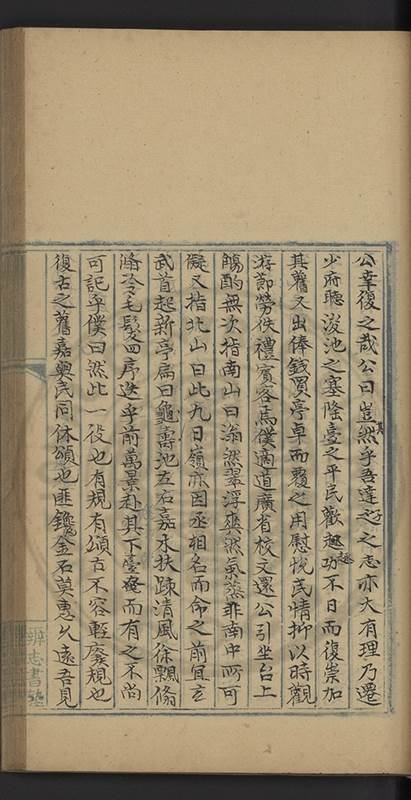 公幸復之哉公曰豈其然乎吾達之之志亦大有理乃還
少府聽浚池之塞隆臺之平民歡趨功不日而復崇加
其舊又出俸錢買亭卓而覆之用慰悅民情抑以時觀
游節勞佚禮賓客焉僕適道廣省校文還公引坐台上
觴酌無次指南山曰滃然翠浮爽然氣蒸非南中所可
儗又指北山曰此九日嶺亦因丞相名而命之前宜立
武首起新亭扁曰龜壽池左右嘉水扶疎清風徐飄翛
潃冷毛髮四序迭乎前萬景赴其下臺奄而有之不尚
可記乎僕曰然此一役也有規有頌古不容輕廢規也
復古之舊嘉與民同休頌也匪鑱金石莫惠久遠吾見
辨志書塾